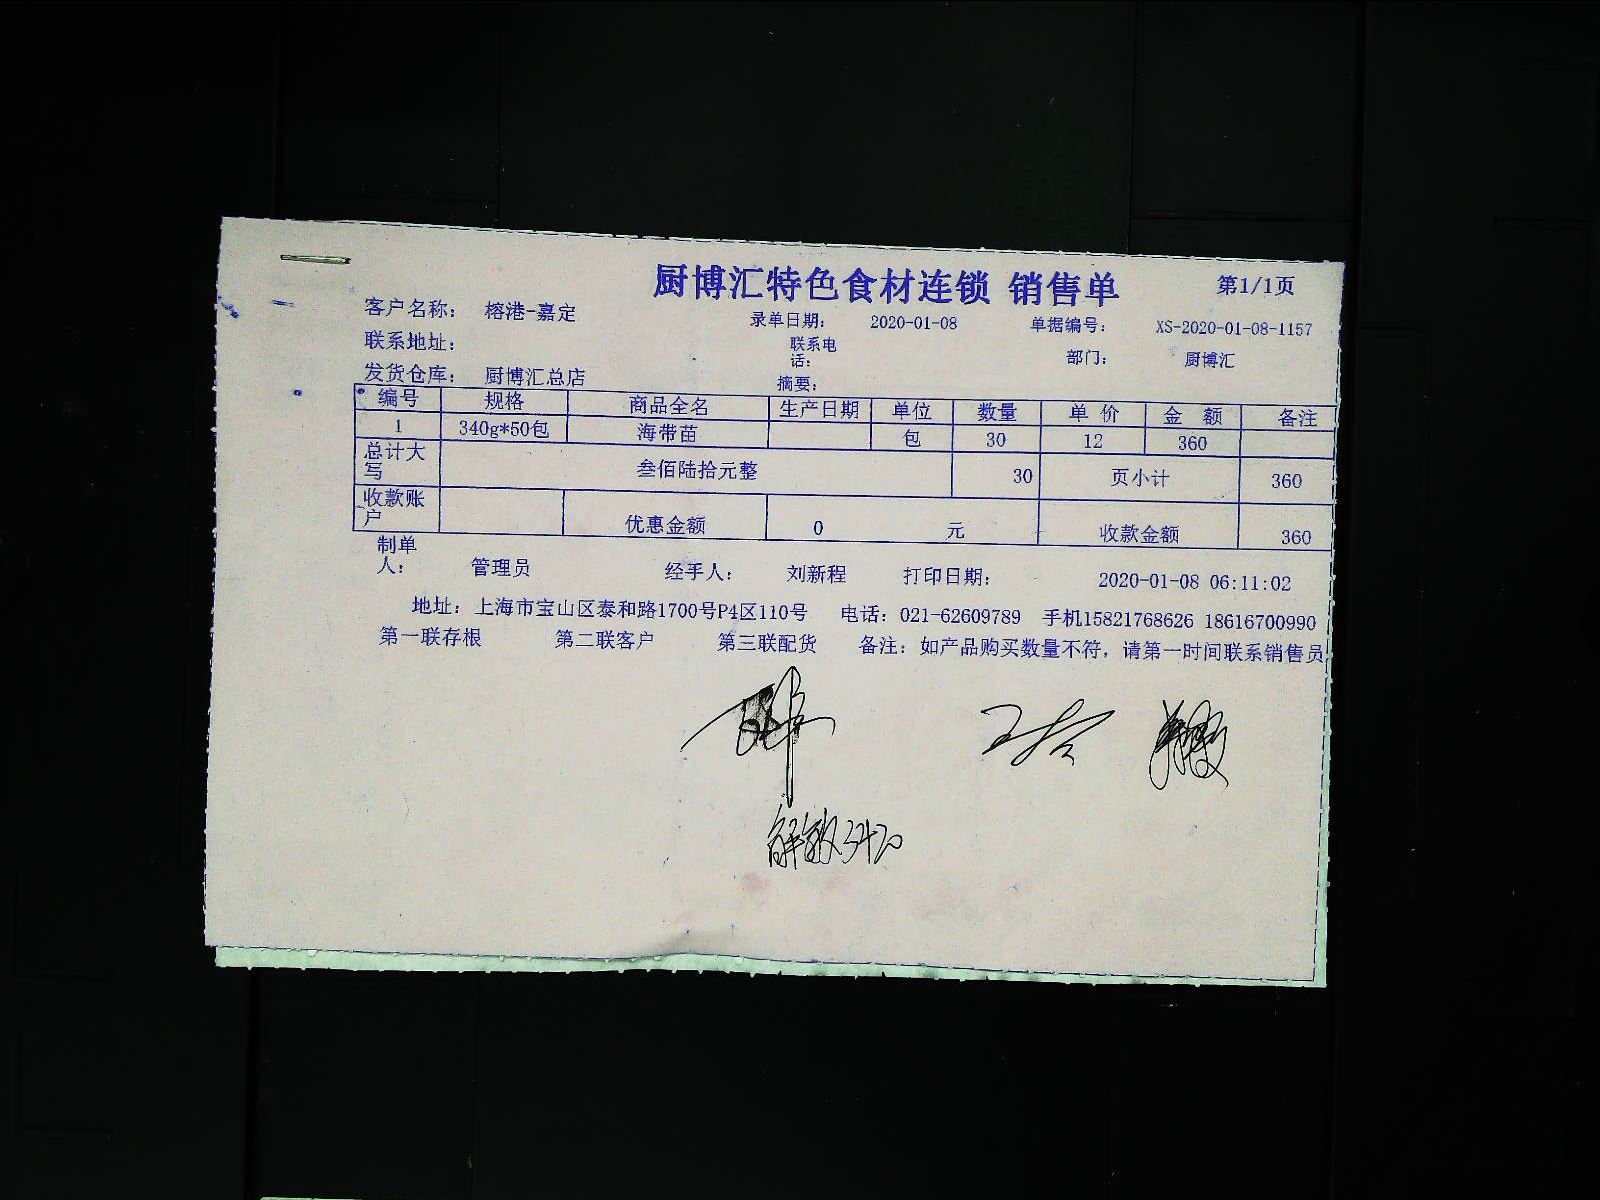 厨博汇特色食材连锁 销售单 第1/1页
客户名称： 榕港-嘉定 录单日期： 2020-01-08 单据编号： XS-2020-01-08-1157
联系地址： 联系电话： 部门： 厨博汇
发货仓库： 厨博汇总店 摘要：
编号 规格 商品全名 生产日期 单位 数量 单 价 金 额 备注
1 340g*50包 海带苗 包 30 12 360
总计大写 叁佰陆拾元整 30 页小计 360
收款账户 优惠金额 0 元 收款金额 360
制单人： 管理员 经手人： 刘新程 打印日期： 2020-01-08 06:11:02
地址：上海市宝山区泰和路1700号P4区110号 电话：021-62609789 手机15821768626 18616700990
第一联存根 第二联客户 第三联配货 备注：如产品购买数量不符，请第一时间联系销售员